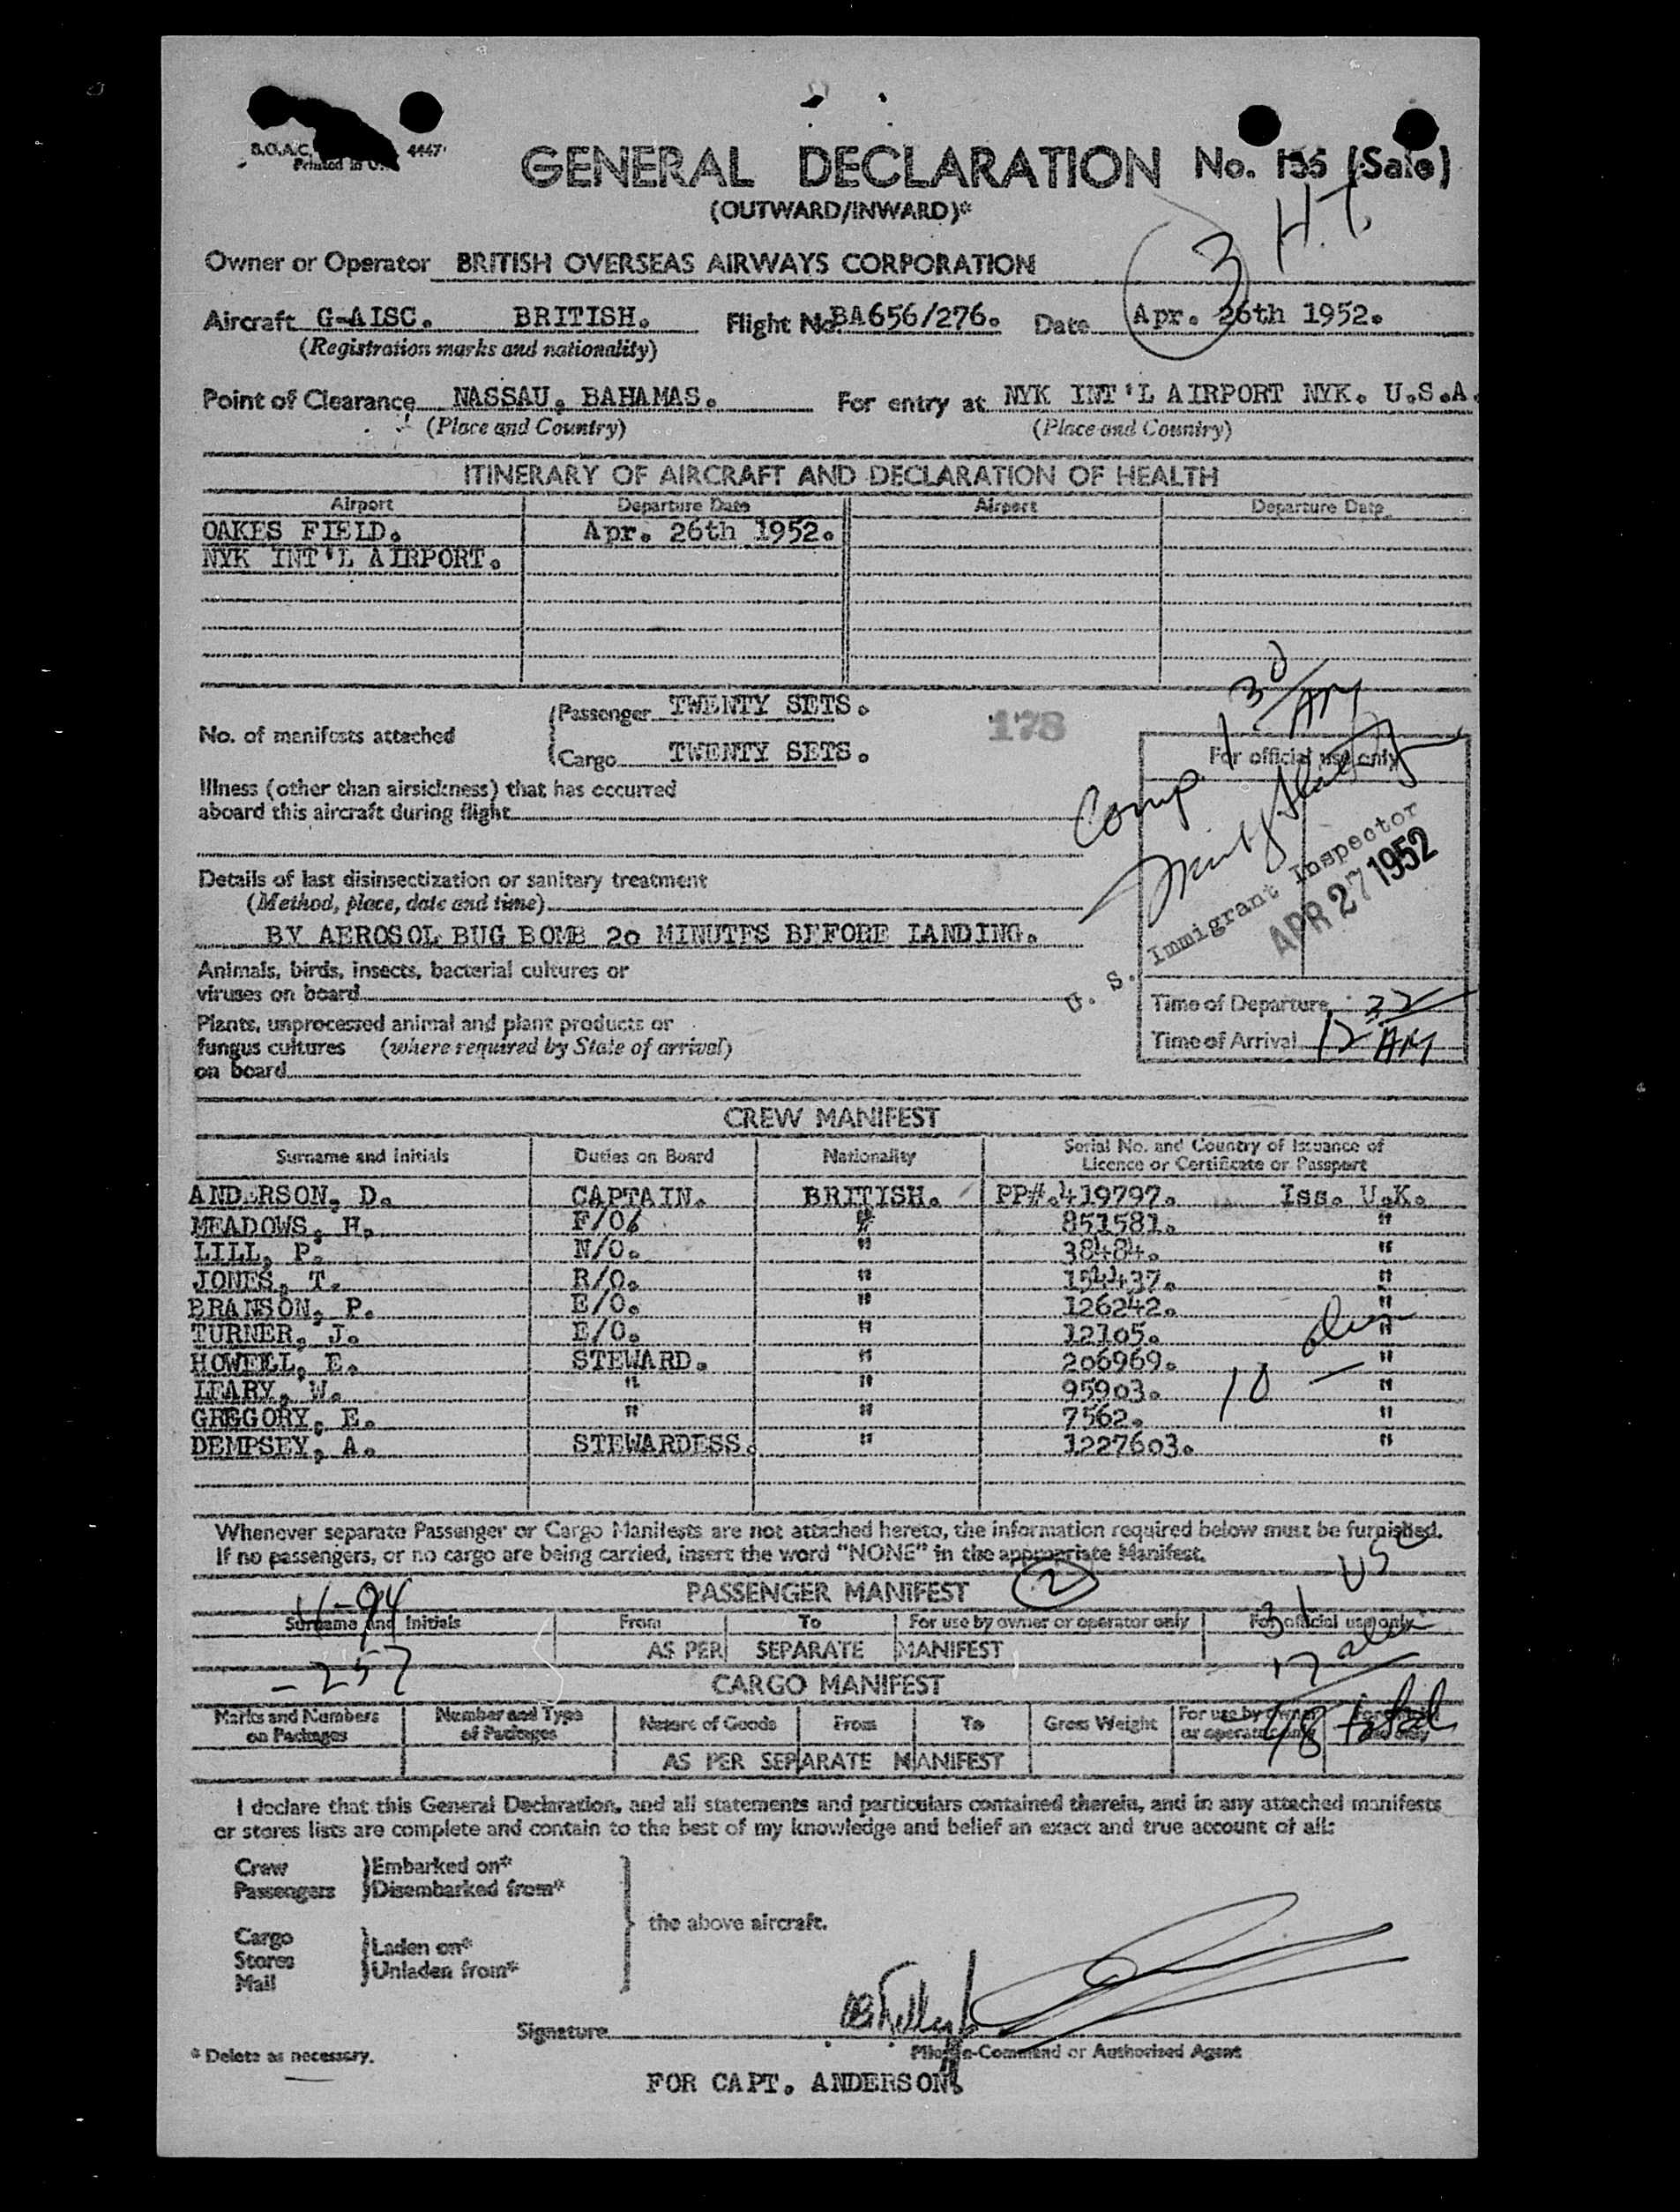 B.O.A.C. 4447
Printed in
GENERAL DECLARATION No. 155 (Sale)
(OUTWARD/INWARD)*
H.T.
3
Owner or Operator BRITISH OVERSEAS AIRWAYS CORPORATION
Aircraft G-AISC. BRITISH. Flight No. BA656/276. Date Apr. 26th 1952.
(Registration marks and nationality)
Point of Clearance NASSAU, BAHAMAS. For entry at NYK INT'L AIRPORT NYK. U.S.A.
(Place and Country) (Place and Country)
ITINERARY OF AIRCRAFT AND DECLARATION OF HEALTH
Airport Departure Date Airport Departure Date
OAKES FIELD. Apr. 26th 1952.
NYK INT'L AIRPORT.
No. of manifests attached
Passenger TWENTY SETS.
Cargo TWENTY SETS.
178
Comp. 1 30 AM
For official use only
Illness (other than airsickness) that has occurred
aboard this aircraft during flight
Details of last disinsectization or sanitary treatment
(Method, place, date and time)
BY AEROSOL BUG BOMB 20 MINUTES BEFORE LANDING.
U. S. Immigrant Inspector
APR 27 1952
Animals, birds, insects, bacterial cultures or
viruses on board
Plants, unprocessed animal and plant products or
fungus cultures (where required by State of arrival)
on board
Time of Departure
Time of Arrival 12 32 AM
CREW MANIFEST
Surname and Initials Duties on Board Nationality Serial No. and Country of Issuance of
Licence or Certificate or Passport
ANDERSON, D. CAPTAIN. BRITISH. PP#.419797. Iss. U.K.
MEADOWS, H. F/O. " 851581. "
LILL, P. N/O. " 38484. "
JONES, T. R/O. " 154437. "
BRANSON, P. E/O. " 126242. "
TURNER, J. E/O. " 12105. "
HOWELL, E. STEWARD. " 206969. "
LEARY, W. " " 95903. "
GREGORY, E. " " 7562. "
DEMPSEY, A. STEWARDESS. " 1227603. "
10 alien
Whenever separate Passenger or Cargo Manifests are not attached hereto, the information required below must be furnished.
If no passengers, or no cargo are being carried, insert the word "NONE" in the appropriate Manifest.
PASSENGER MANIFEST
2
31 USC
Surname and Initials From To For use by owner or operator only For official use only
AS PER SEPARATE MANIFEST
17 alien
- 257
CARGO MANIFEST
48 total
Marks and Numbers on Packages Number and Type of Packages Nature of Goods From To Gross Weight For use by owner or operator only For official use only
AS PER SEPARATE MANIFEST
I declare that this General Declaration, and all statements and particulars contained therein, and in any attached manifests
or stores lists are complete and contain to the best of my knowledge and belief an exact and true account of all:
Crew Embarked on*
Passengers Disembarked from*
the above aircraft.
Cargo
Stores Laden on*
Mail Unladen from*
Signature
Pilot-in-Command or Authorised Agent
* Delete as necessary.
FOR CAPT. ANDERSON.